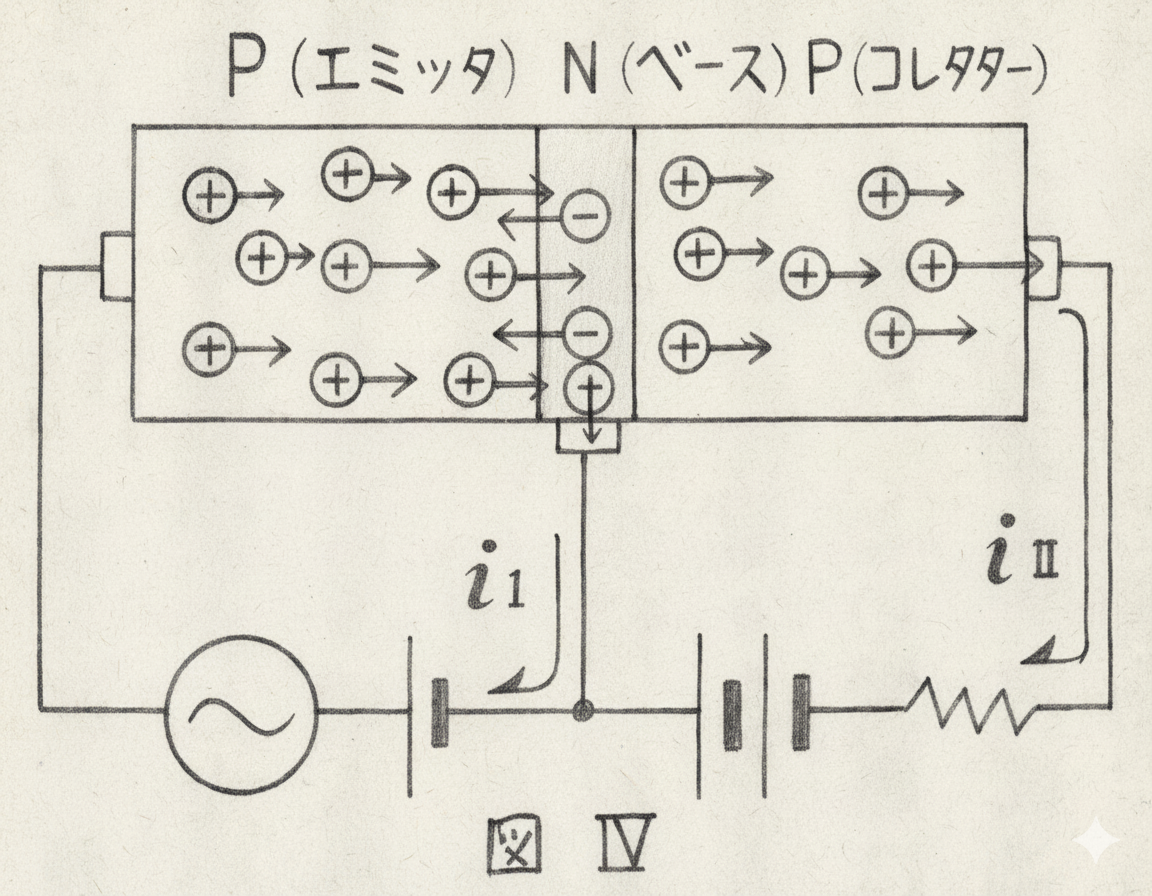 P (エミッタ) N (ベース) P (コレタター)
i 1
i II
図 IV